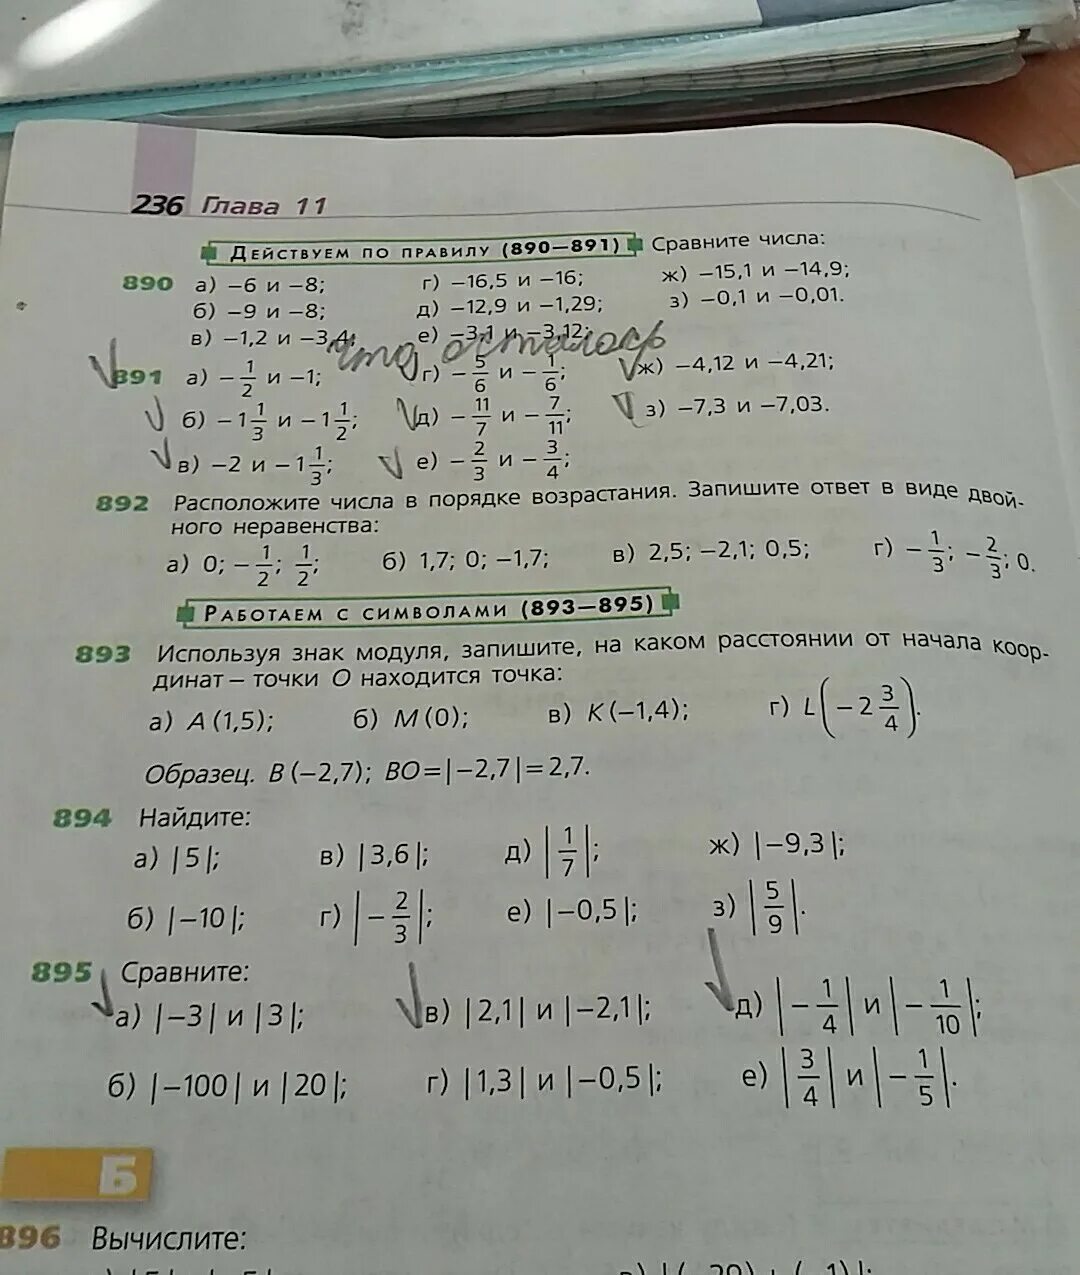 236 Глава 11
ДЕЙСТВУЕМ ПО ПРАВИЛУ (890—891) Сравните числа:
890 а) −6 и −8; г) −16,5 и −16; ж) −15,1 и −14,9;
б) −9 и −8; д) −12,9 и −1,29; з) −0,1 и −0,01.
в) −1,2 и −3,4; е) −3,1 и −3,12;
что осталось
891 а) −1/2 и −1; г) −5/6 и −1/6; ж) −4,12 и −4,21;
б) −1 1/3 и −1 1/2; д) −11/7 и −7/11; з) −7,3 и −7,03.
в) −2 и −1 1/3; е) −2/3 и −3/4;
892 Расположите числа в порядке возрастания. Запишите ответ в виде двой-
ного неравенства:
а) 0; −1/2; 1/2; б) 1,7; 0; −1,7; в) 2,5; −2,1; 0,5; г) −1/3; −2/3; 0.
РАБОТАЕМ С СИМВОЛАМИ (893—895)
893 Используя знак модуля, запишите, на каком расстоянии от начала коор-
динат — точки O находится точка:
а) A (1,5); б) M (0); в) K (−1,4); г) L(−2 3/4).
Образец. B (−2,7); BO = |−2,7| = 2,7.
894 Найдите:
а) |5|; в) |3,6|; д) |1/7|; ж) |−9,3|;
б) |−10|; г) |−2/3|; е) |−0,5|; з) |5/9|.
895 Сравните:
а) |−3| и |3|; в) |2,1| и |−2,1|; д) |−1/4| и |−1/10|;
б) |−100| и |20|; г) |1,3| и |−0,5|; е) |3/4| и |−1/5|.
Б
896 Вычислите: